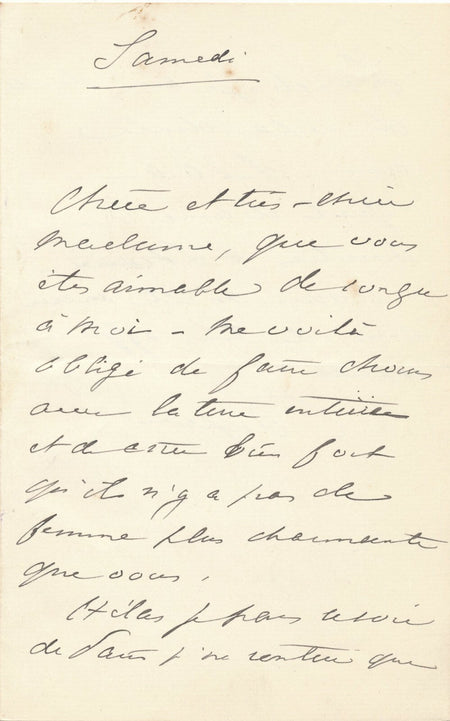 Samedi
Chère et très-chère
Madame, que vous
êtes aimable de songer
à moi - me voilà
obligé de faire chorus
avec la terre entière
et de crier bien fort
qu'il n'y a pas de
femme plus charmante
que vous.
Hélas je pars ce soir
de Paris je ne rentrerai que